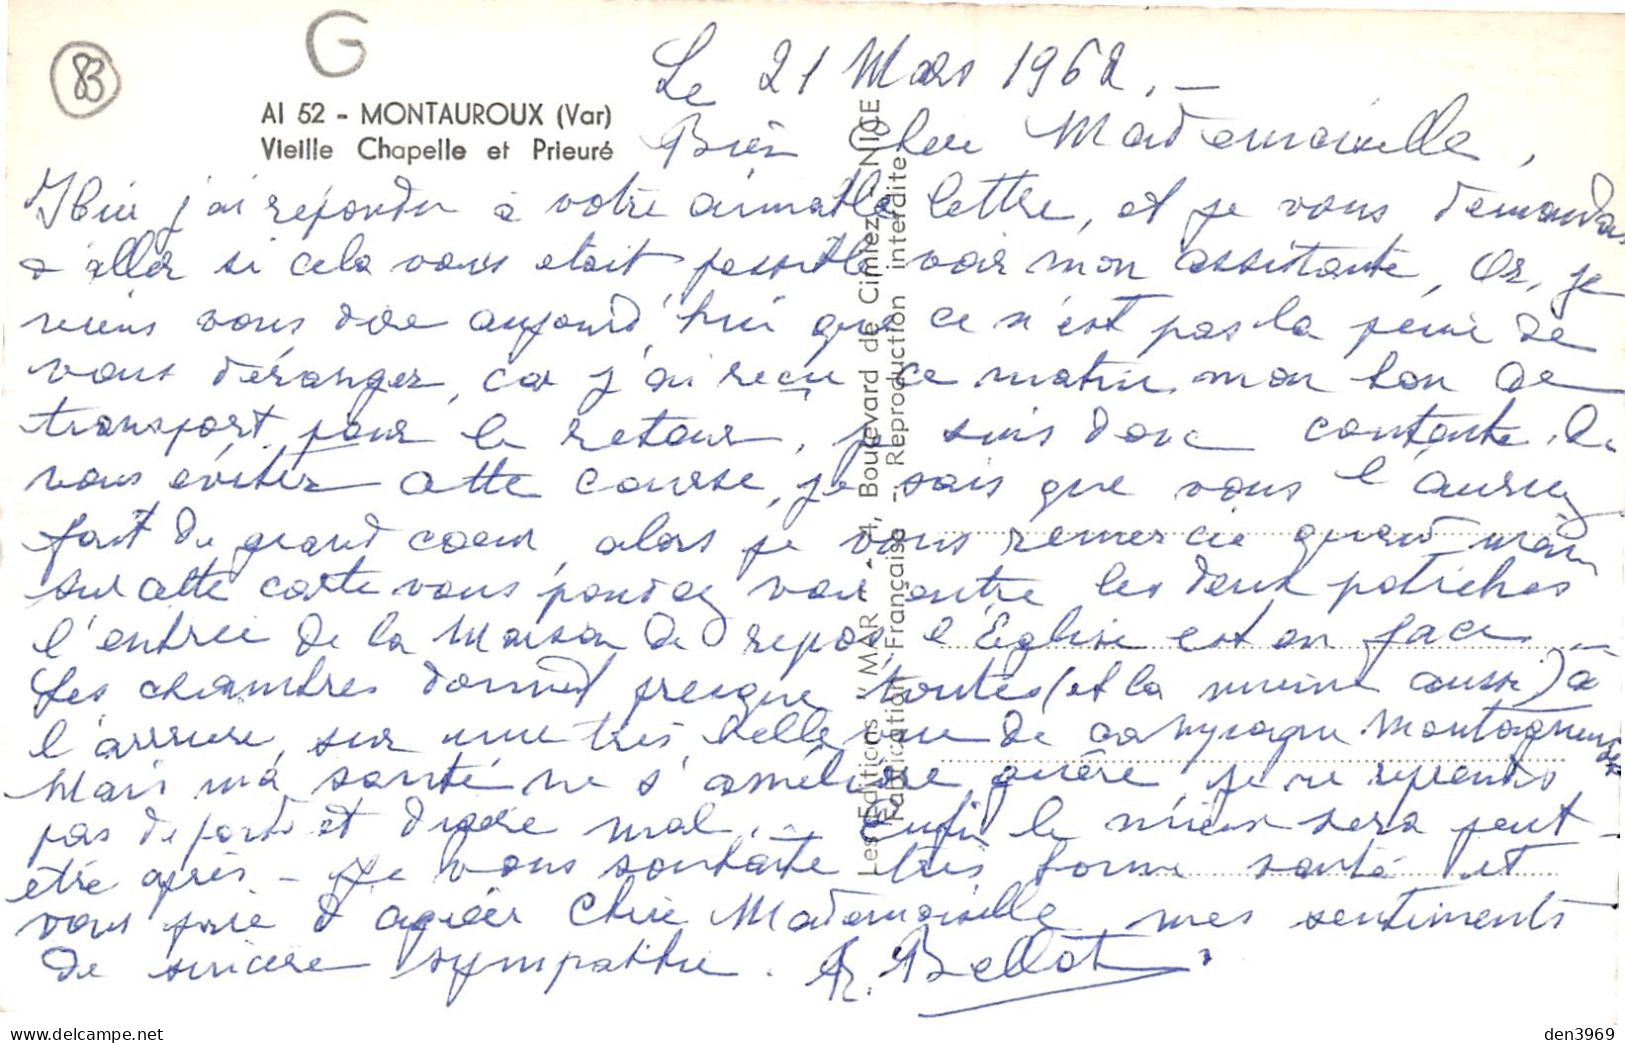 83
G
AI 52 - MONTAUROUX (Var)
Vieille Chapelle et Prieuré
Le 21 Mars 1962. -
Bien chère Mademoiselle,
Hier j'ai répondu à votre aimable lettre, et je vous demandais
d'aller si cela vous etait possible voir mon assistante, Or, je
viens vous dire aujourd'hui que ce n'est pas la peine de
vous déranger, car j'ai reçu ce matin mon bon de
transport pour le retour, je suis donc contente de
vous éviter cette course, je sais que vous l'auriez
fait de grand coeur, alors je vous remercie quand même
sur cette carte vous pouvez voir entre les deux potiches
l'entrée de la Maison de repos, l'Eglise est en face -
Les chambres donnent presque toutes (et la mienne aussi) à
l'arrière, sur une très belle vue de campagne Montagneuse
Mais ma santé ne s'améliore guère, je ne reprends
pas de poids et digère mal, - Enfin le mieux sera peut-
etre après - Je vous souhaite très bonne santé et
vous prie d'agréer Chère Mademoiselle mes sentiments
de sincère sympathie. R. Bellot
Les Editions "MAR" - 4, Boulevard de Cimiez - NICE
Fabrication Française - Reproduction interdite
www.delcampe.net
den3969